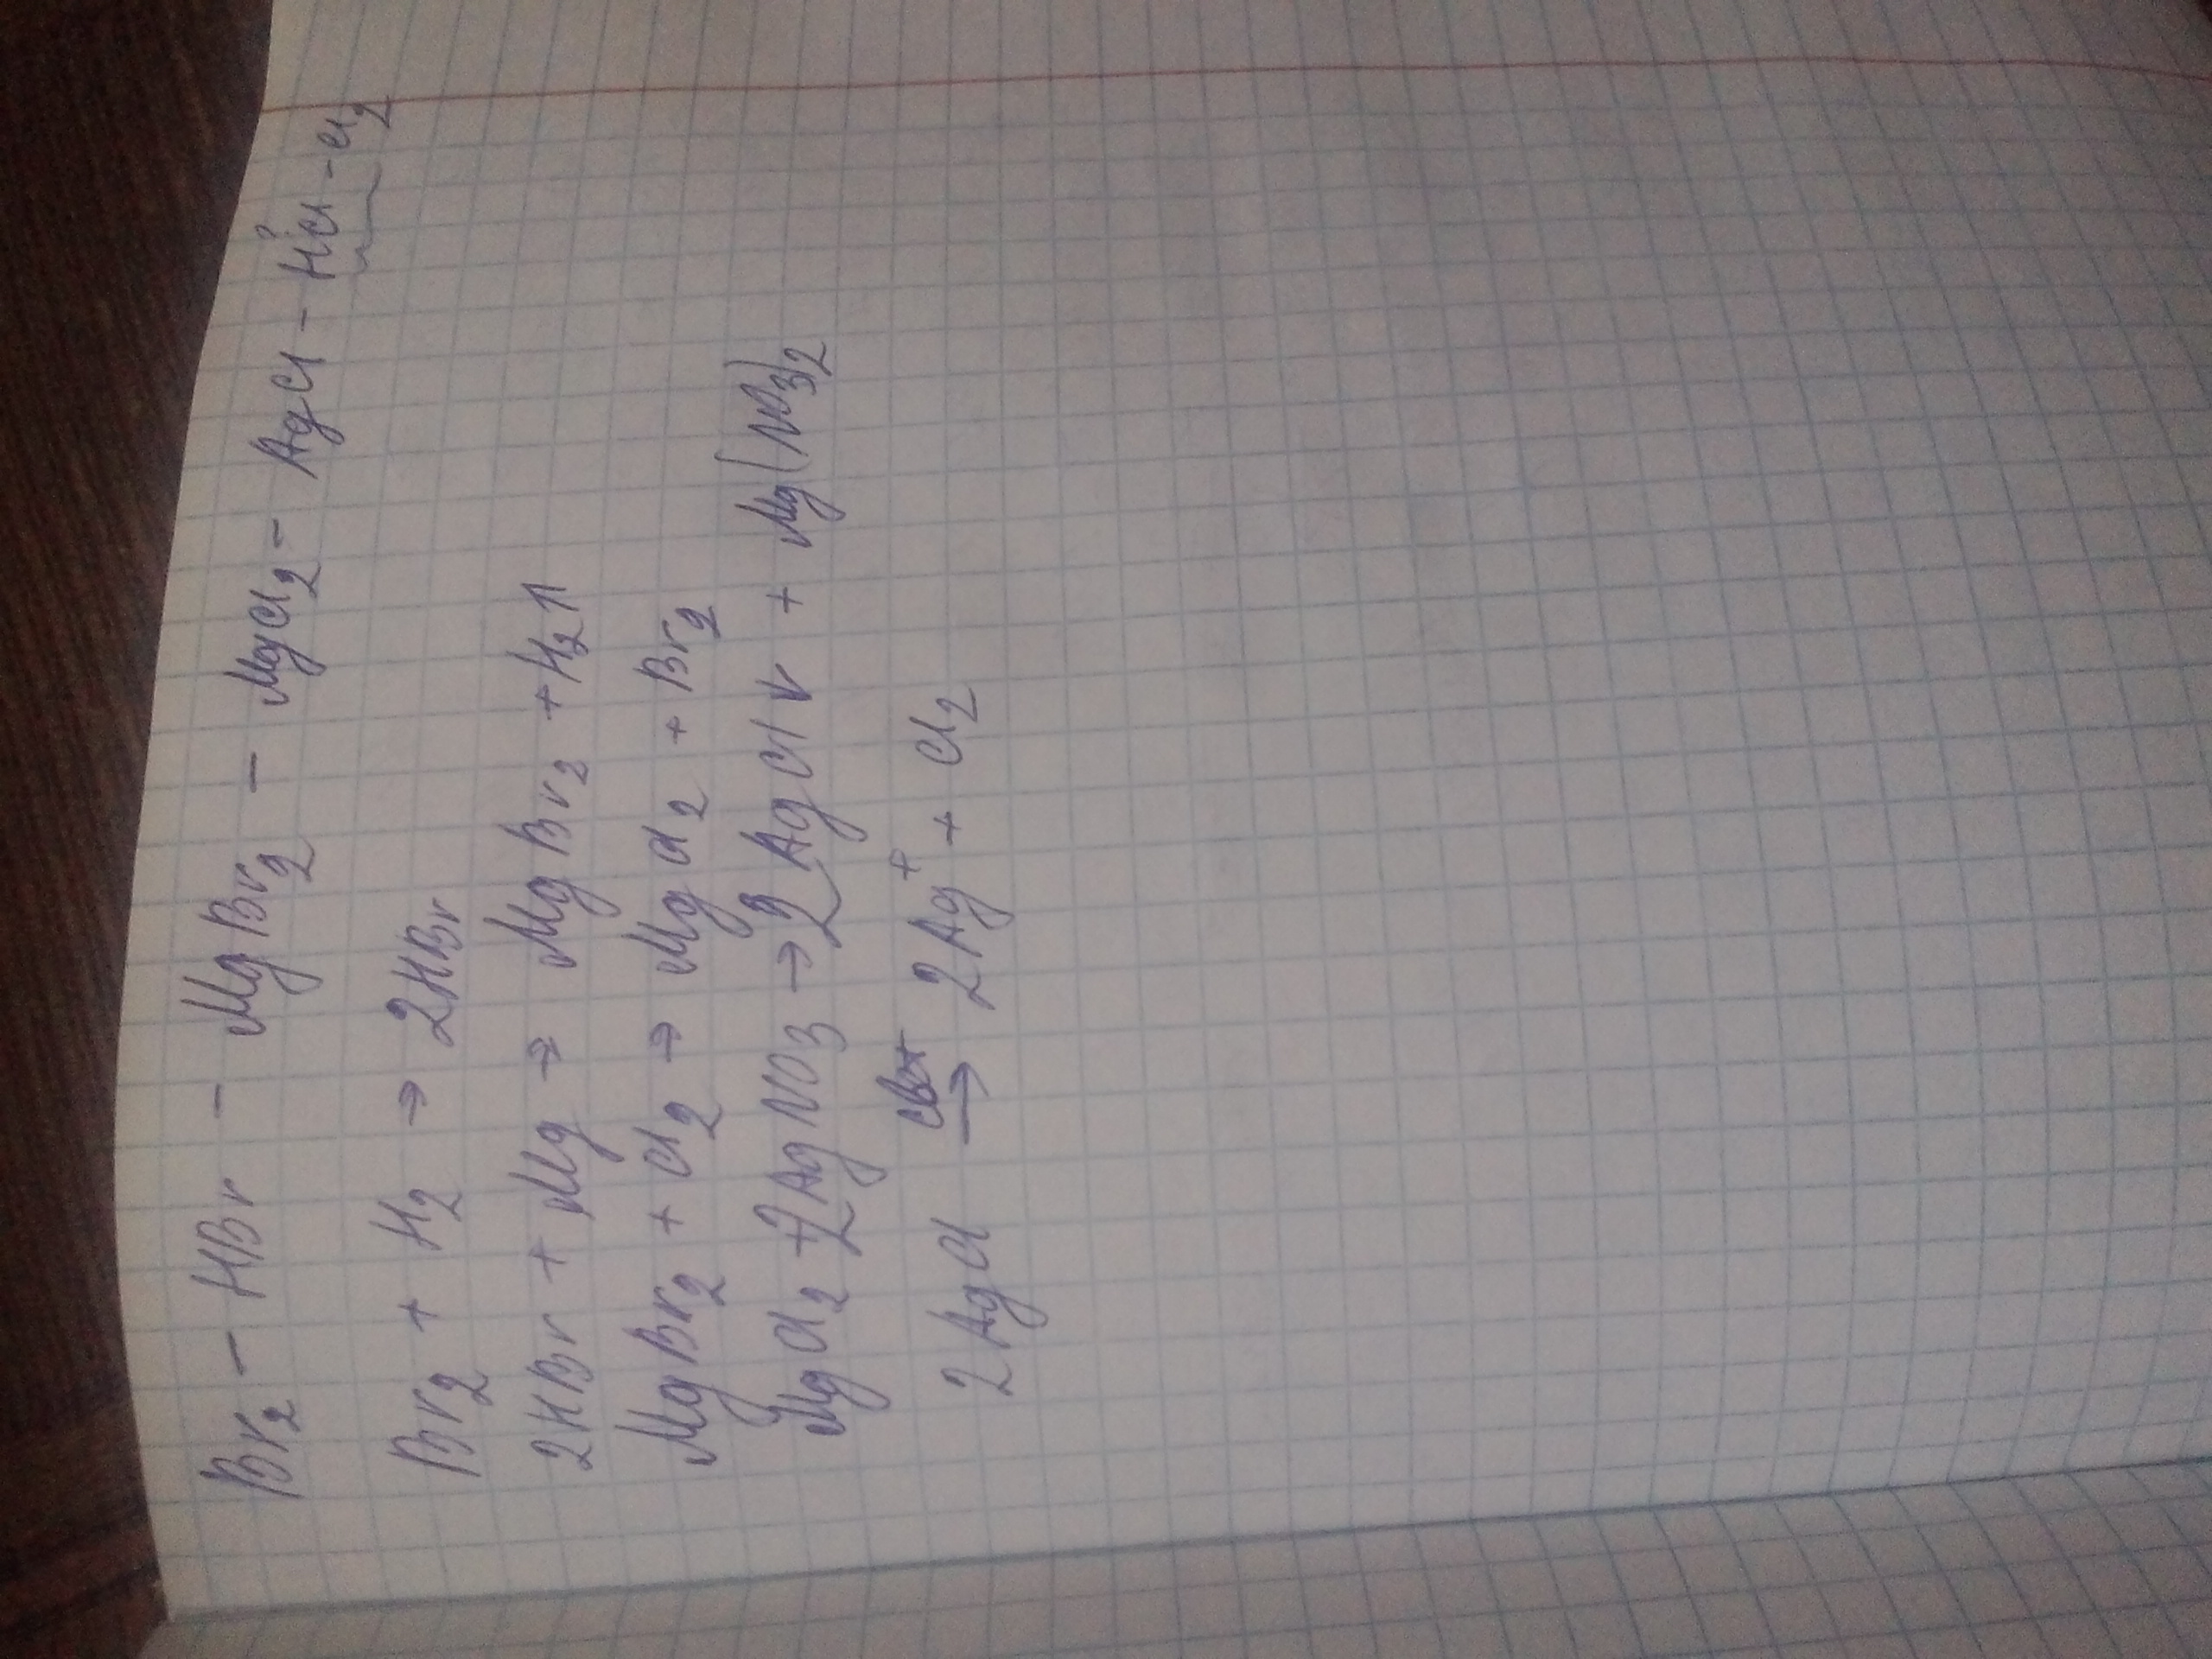 Br₂ – HBr – MgBr₂ – MgCl₂ – AgCl – HCl – Cl₂
?
Br₂ + H₂ → 2HBr
2HBr + Mg → MgBr₂ + H₂↑
MgBr₂ + Cl₂ → MgCl₂ + Br₂
MgCl₂ + 2AgNO₃ → 2AgCl↓ + Mg(NO₃)₂
2AgCl свет→ 2Ag⁺ + Cl₂